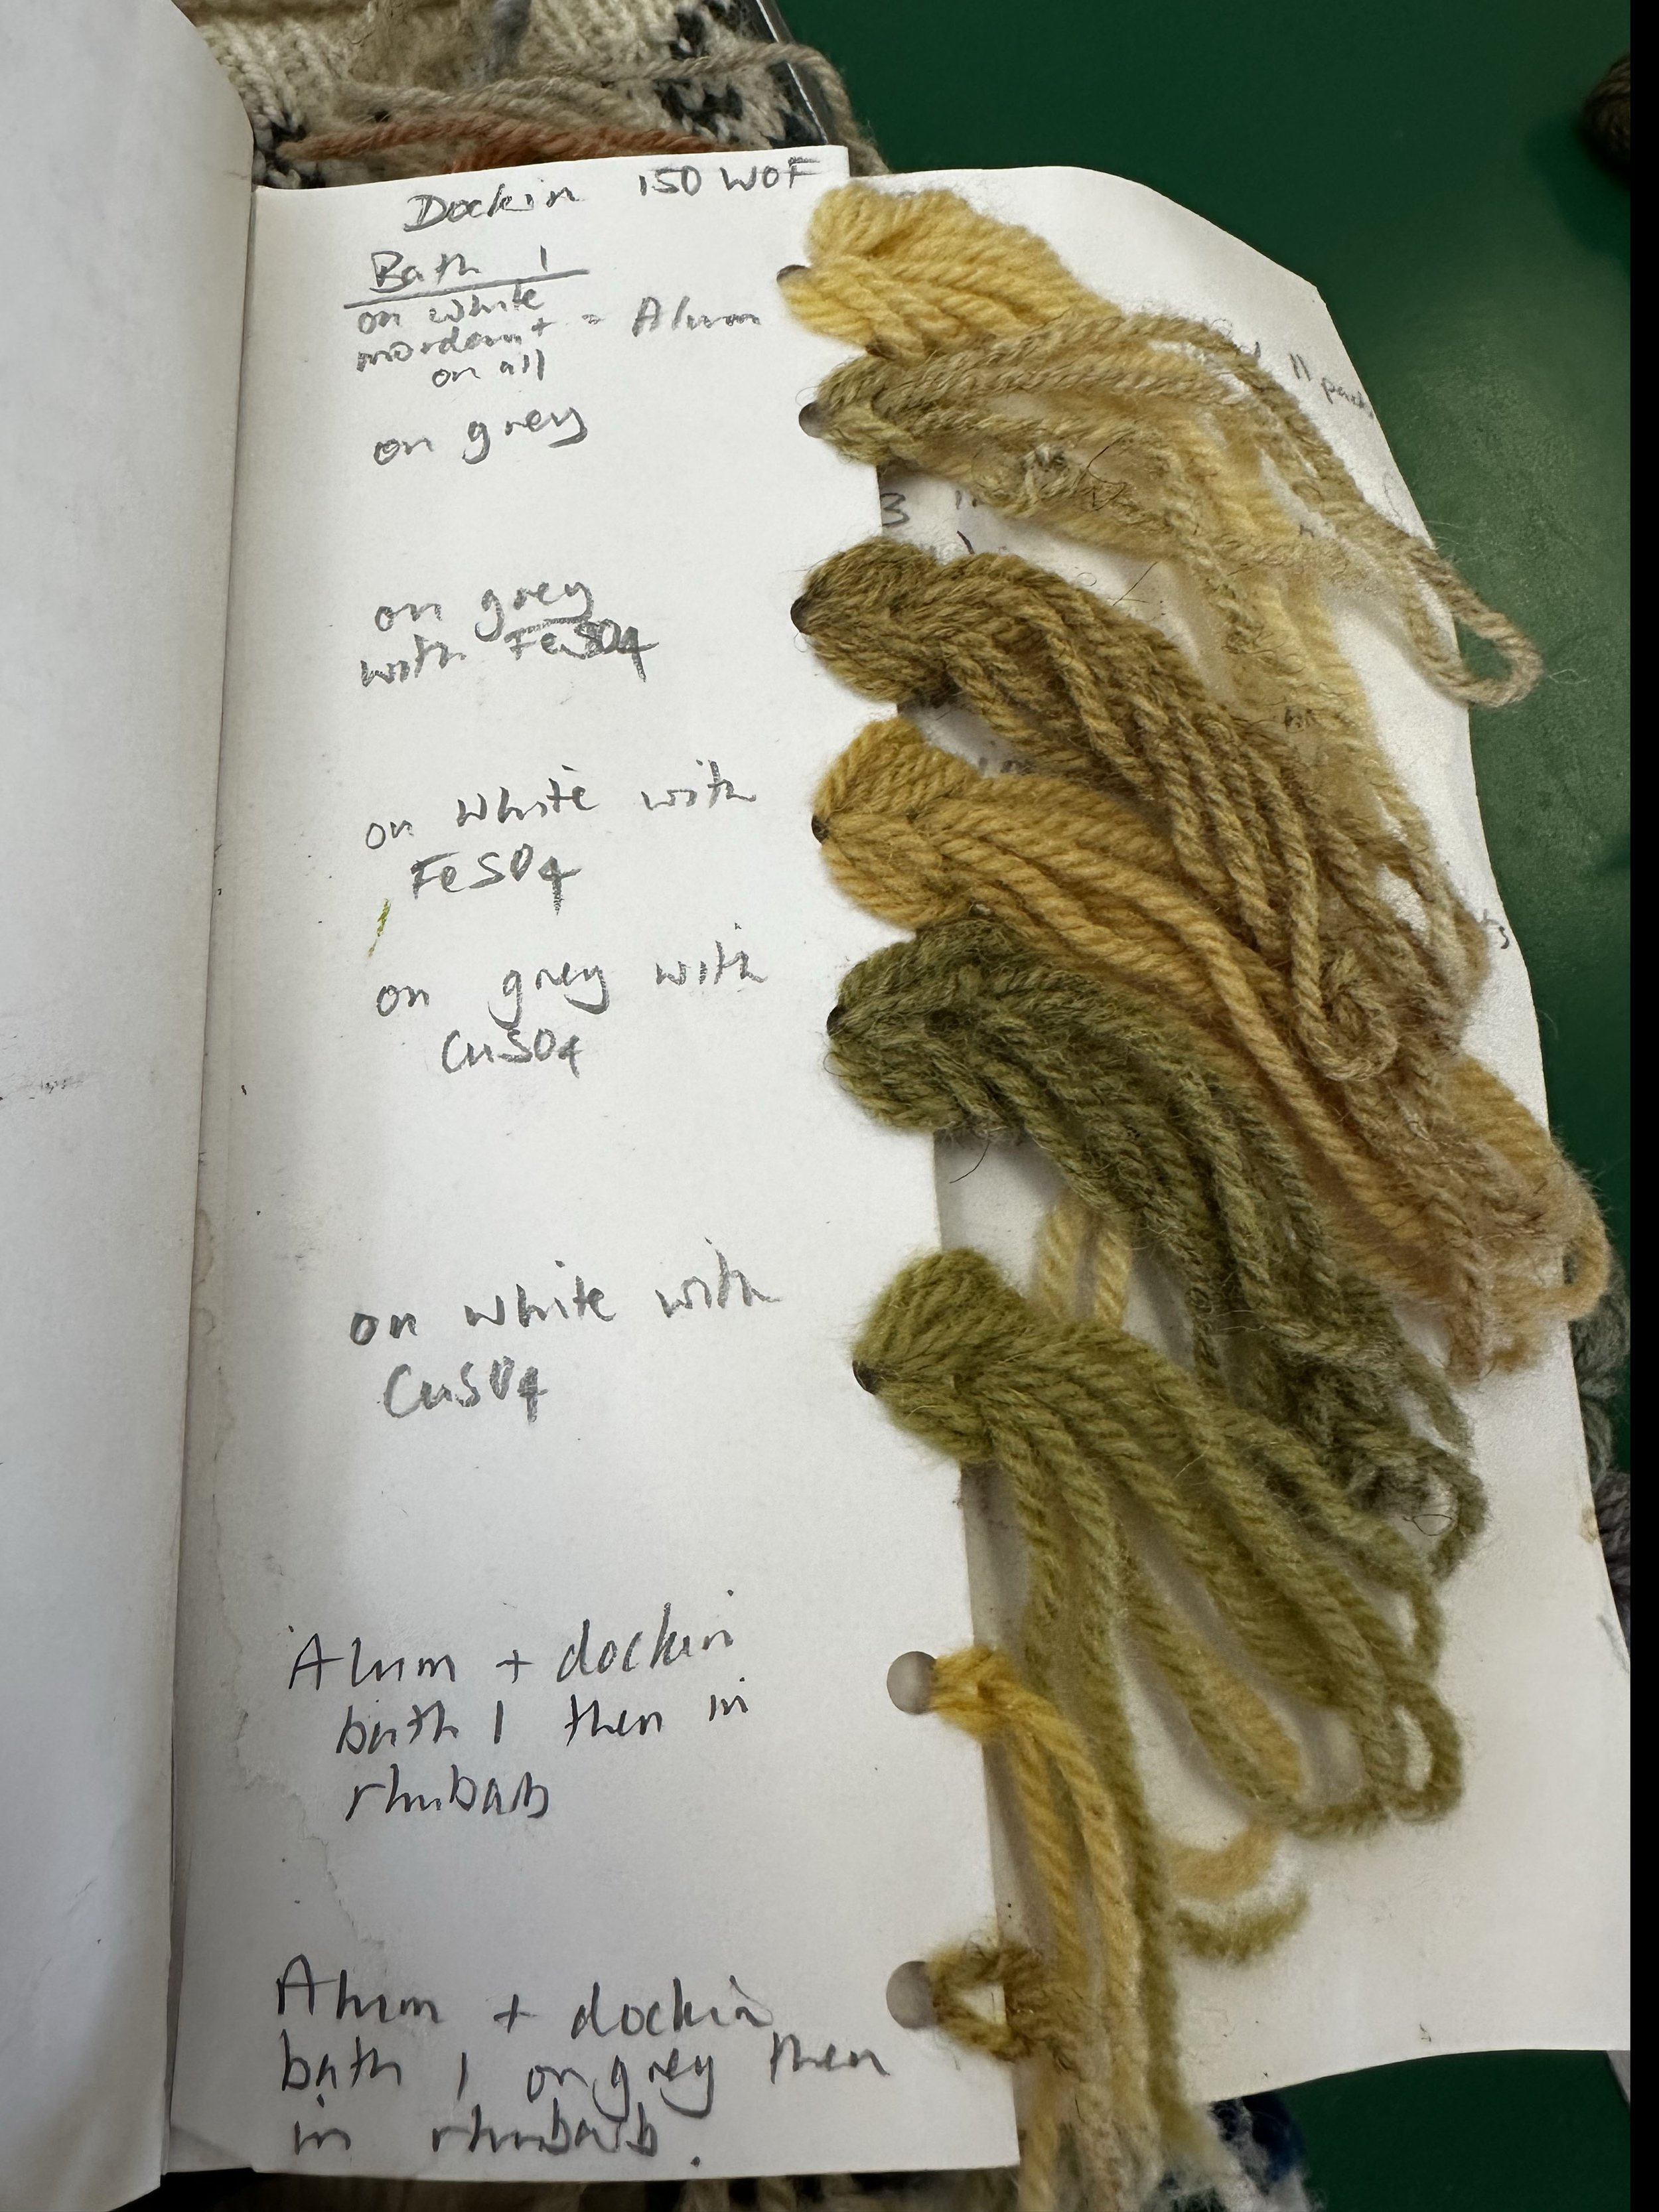 Dockin 150 WOF
Bath 1
on white
mordant = Alum
on all
on grey
on grey
with FeSO4
on white with
FeSO4
on grey with
CuSO4
on white with
CuSO4
Alum + dockin
bath 1 then in
rhubarb
Alum + dockin
bath 1 on grey then
in rhubarb.
3